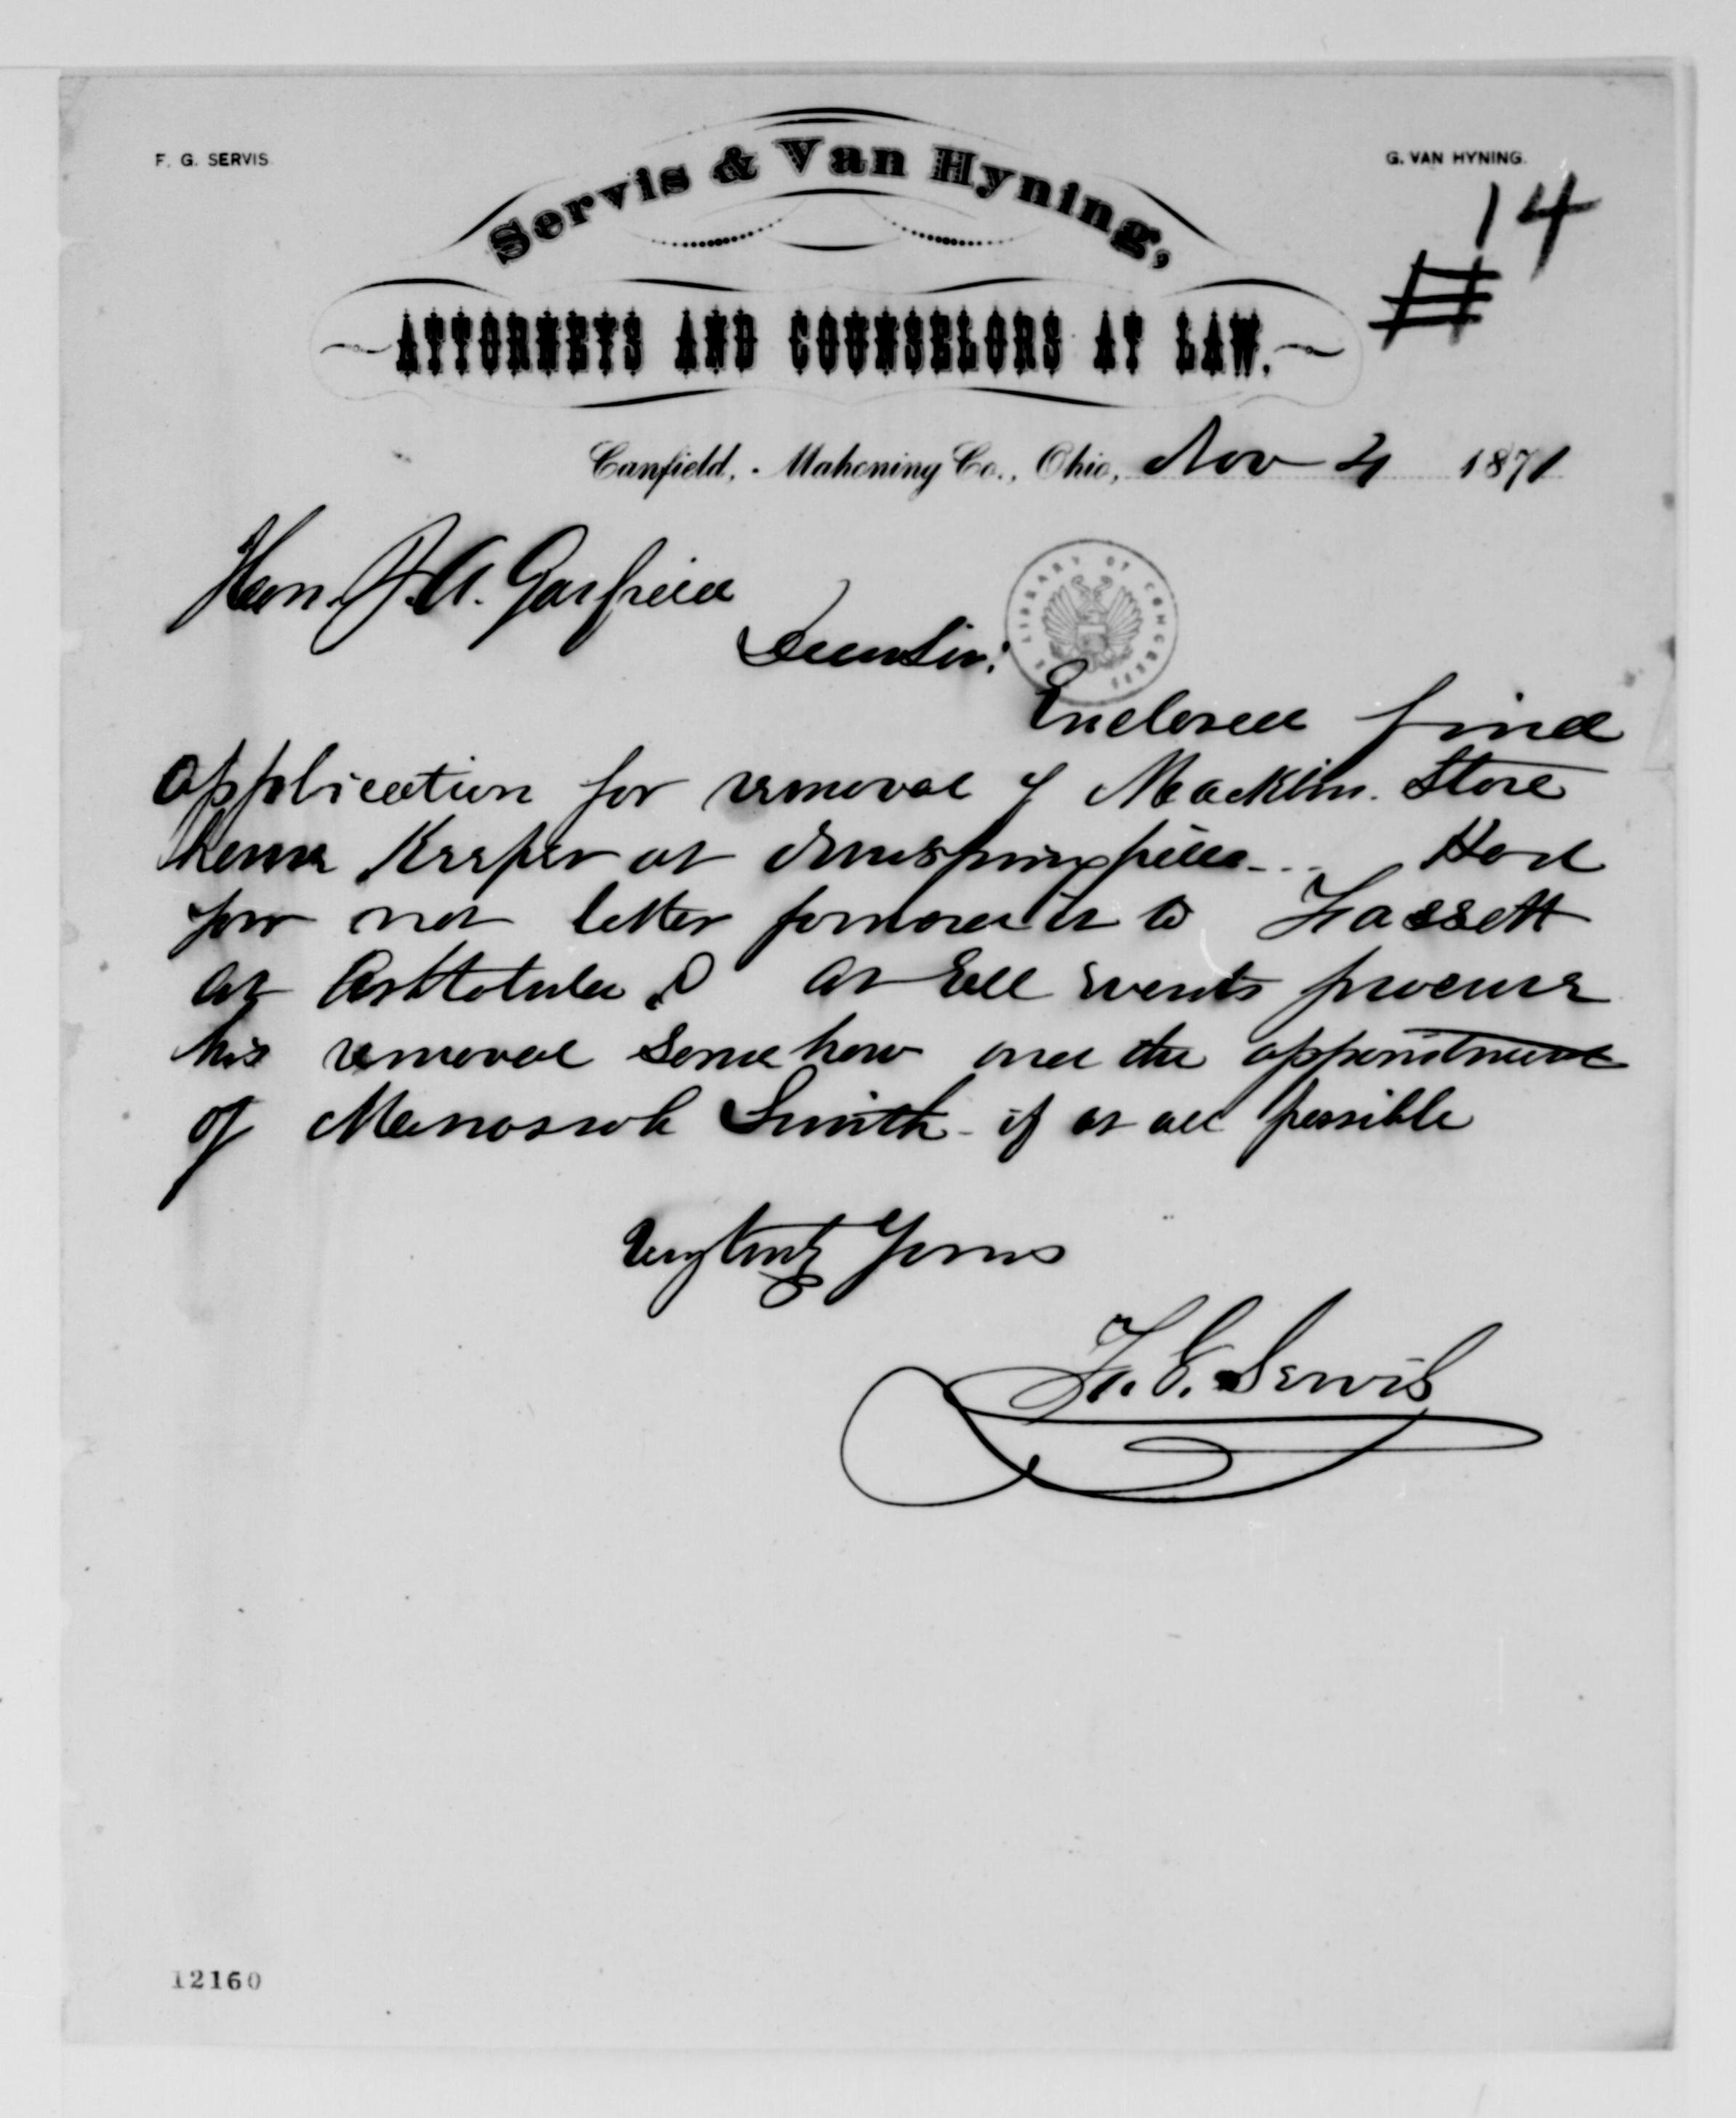 F. G. SERVIS.
G. VAN HYNING.
Servis & Van Hyning,
14
#
ATTORNEYS AND COUNSELORS AT LAW.
Canfield, Mahoning Co., Ohio, Nov 4 1871
Hon. J. A. Garfield
Dear Sir:
LIBRARY OF CONGRESS
Enclosed find
application for removal of Macklin. Store
house Keeper at Had
you not better forward it to Fassett
at Ashtabula ? at all events procure
his removal some how and the appointment
of Manassah Smith - if at all possible
Very truly Yours
F. G. Servis
12160